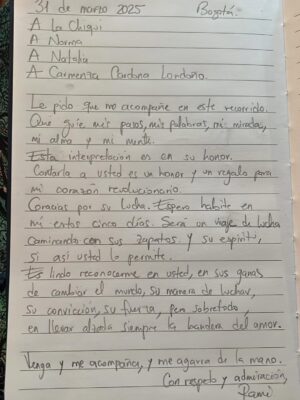 31 de marzo 2025 Bogotá.
A La Chiqui
A Norma
A Natalia
A Carmenza Cardona Londoño.
Le pido que me acompañe en este recorrido.
Que guíe mis pasos, mis palabras, mi mirada,
mi alma y mi mente.
Esta interpretación es en su honor.
Contarla a usted es un honor y un regalo para
mi corazón revolucionario.
Gracias por su lucha. Espero habite en
mi estos cinco días. Será un viaje de lucha
caminando con sus zapatos y su espíritu,
si así usted lo permite.
Es lindo reconocerme en usted, en sus ganas
de cambiar el mundo, su manera de luchar,
su convicción, su fuerza, pero sobretodo,
en llevar alzada siempre la bandera del amor.
Venga y me acompaña, y me agarra de la mano.
Con respeto y admiración,